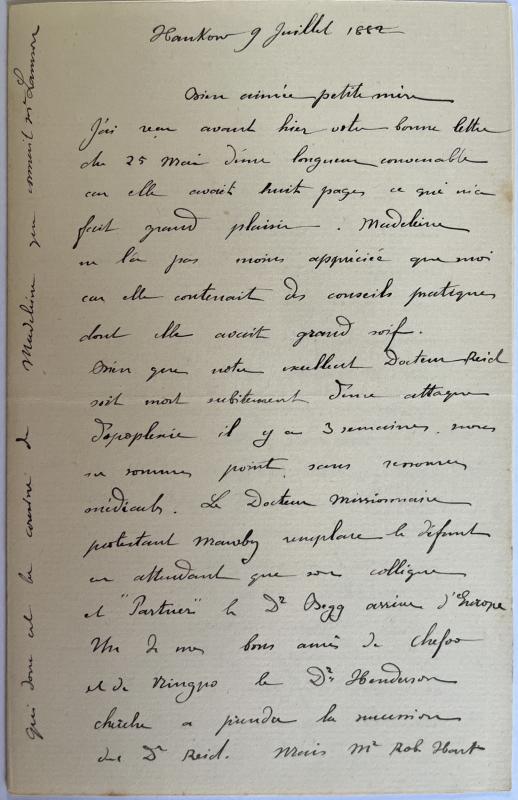 Hankow 9 Juillet 1882
Bien aimée petite mère
J'ai reçu avant hier votre bonne lettre
du 25 Mai d'une longueur convenable
car elle avait huit pages ce qui m'a
fait grand plaisir. Madeleine
ne l'a pas moins appréciée que moi
car elle contenait des conseils pratiques
dont elle avait grand soif.
Bien que notre excellent Docteur Reid
soit mort subitement d'une attaque
d'apoplexie il y a 3 semaines, nous
ne sommes point sans ressources
médicales. Le Docteur Missionnaire
protestant Mawby remplace le défunt
en attendant que son collègue
et "Partner" le Dr Begg arrive d'Europe
Un de mes bons amis de Chefoo
et de Ningpo le Dr Henderson
cherche a prendre la succession
du Dr Reid. Mais Mr Rob Hart
qui donc est la cousine de Madeleine qui connait Mr Lamson